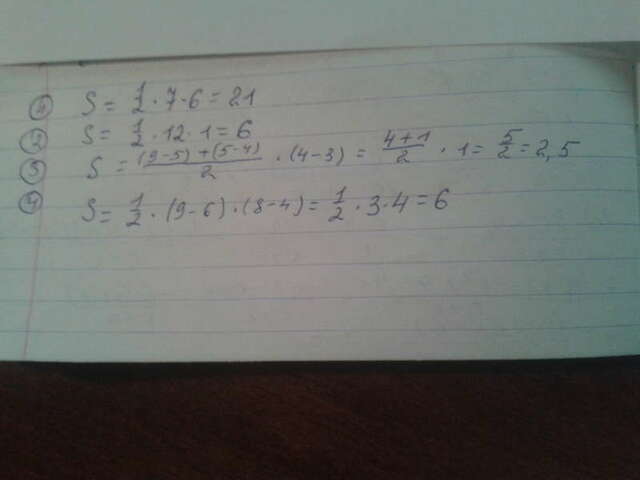 ① S = 1/2 · 7 · 6 = 21
② S = 1/2 · 12 · 1 = 6
③ S = (9-5)+(5-4)/2 · (4-3) = 4+1/2 · 1 = 5/2 = 2,5
④ S = 1/2 · (9-6) · (8-4) = 1/2 · 3 · 4 = 6